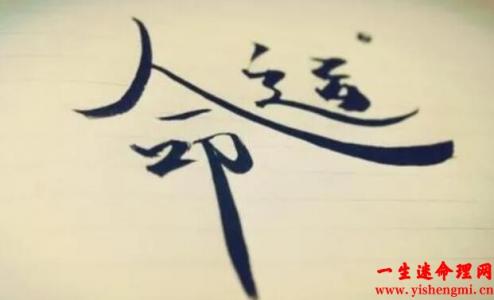 命运
一生迷命理网
www.yishengmi.cn